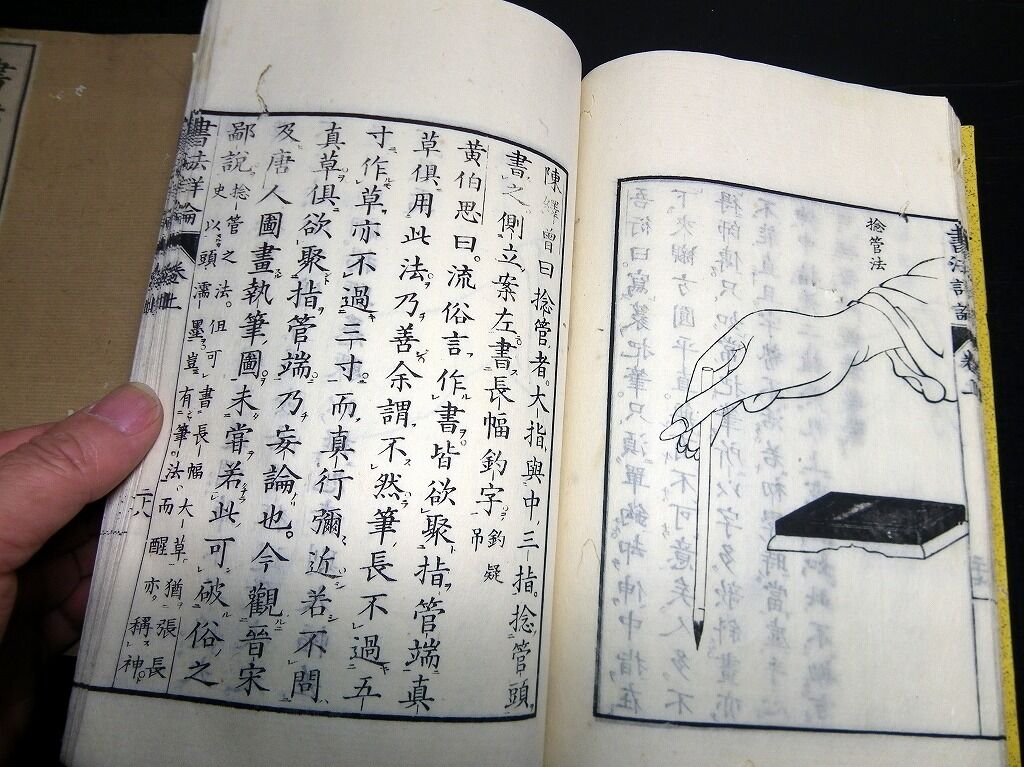 捻管法
書法詳論 卷上
陳繹曾曰捻管者。大指與中三指。捻管頭。
書之。側立案左。書長幅釣字 釣疑
吊
黄伯思曰。流俗言。作書皆欲聚指管端。真
草俱用此法乃善。余謂不然。筆長不過五
寸。作草亦不過三寸。而真行彌近。若不問
真草俱欲聚指管端。乃妄論也。今觀晉宋
及唐人圖畫執筆圖。未嘗若此。可破俗之
鄙說 捻管之法。但可書長幅大草。猶張長
史以頭濡墨。豈有筆法。而醒亦稱神。
書法詳論 卷上